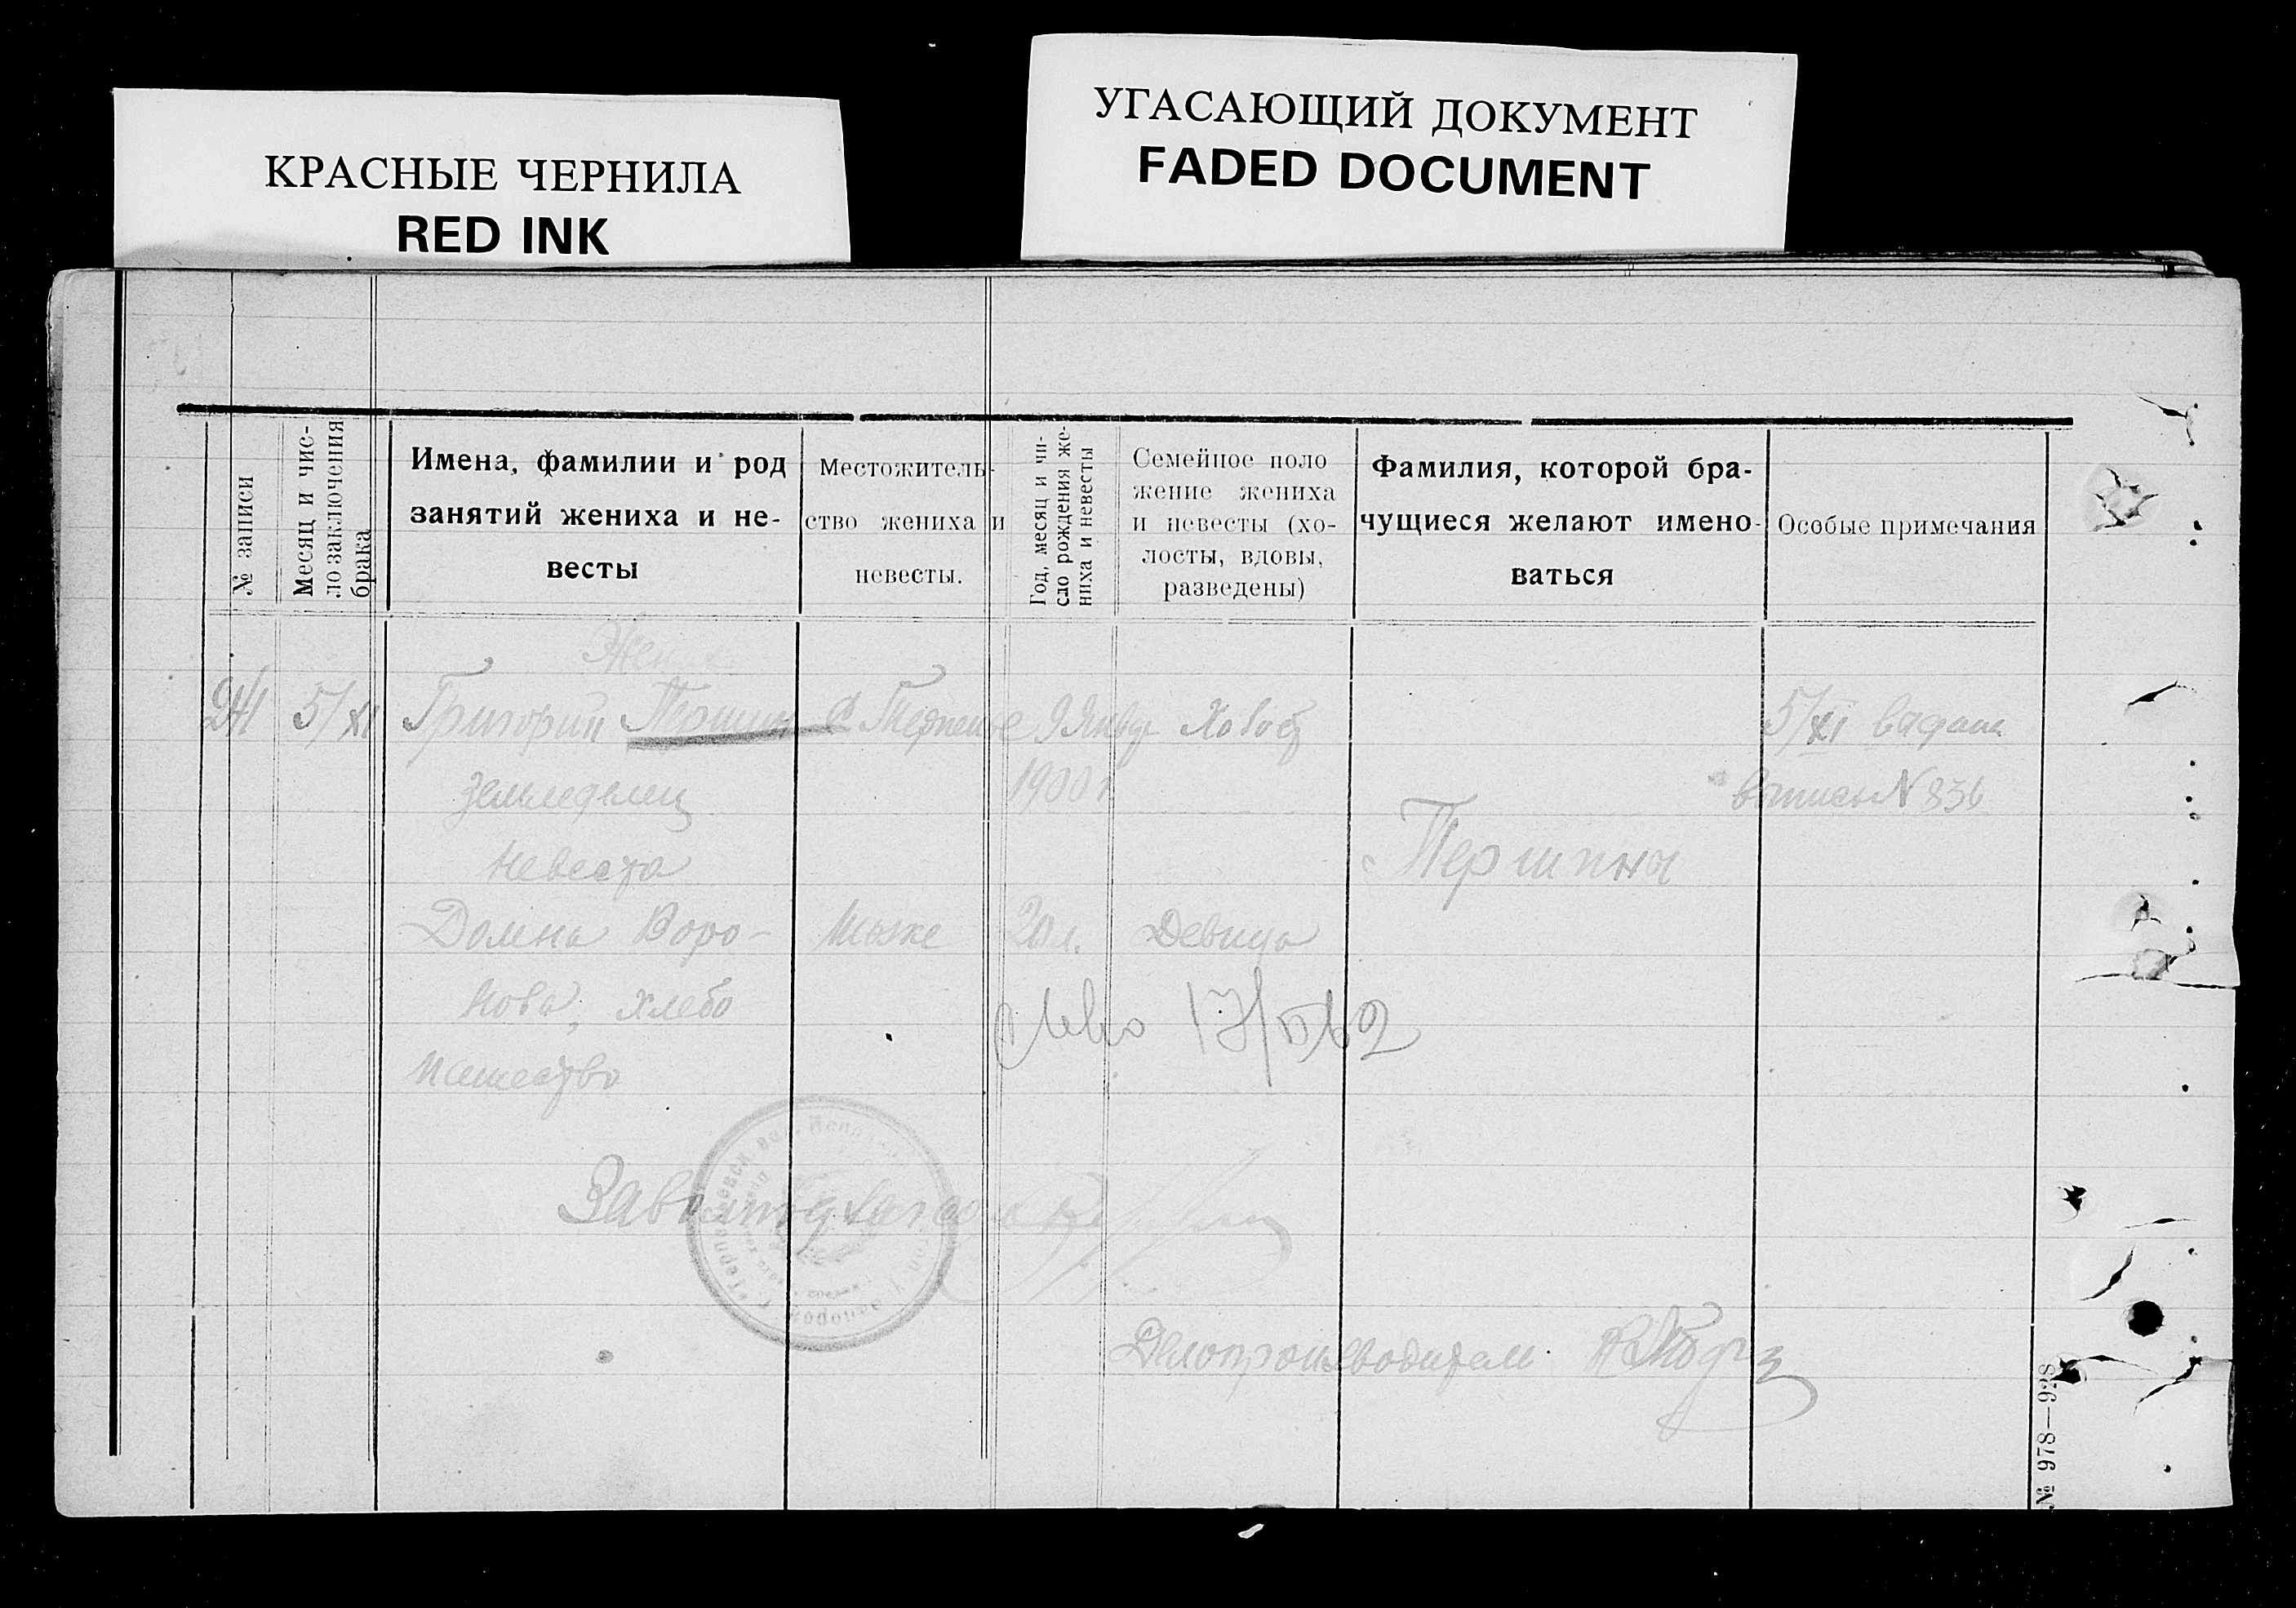 КРАСНЫЕ ЧЕРНИЛА
RED INK
УГАСАЮЩИЙ ДОКУМЕНТ
FADED DOCUMENT
№ записи
Месяц и чис-
ло заключения
брака
Имена, фамилии и род
занятий жениха и не-
весты
Местожитель-
ство жениха и
невесты.
Год, месяц и чи-
сло рождения же-
ниха и невесты
Семейное поло
жение жениха
и невесты (хо-
лосты, вдовы,
разведены)
Фамилия, которой бра-
чущиеся желают имено-
ваться
Особые примечания
Жених
241 5/XI Григорий Першин С Терпение 9 Январ Холост 5/XI выдана
земледелец 1900 г выпись N 836
Невеста Першины
Домна Воро- тоже 20 л. Девица
нова, хлебо
пашество
17/
Делопроизводитель
№ 978—928